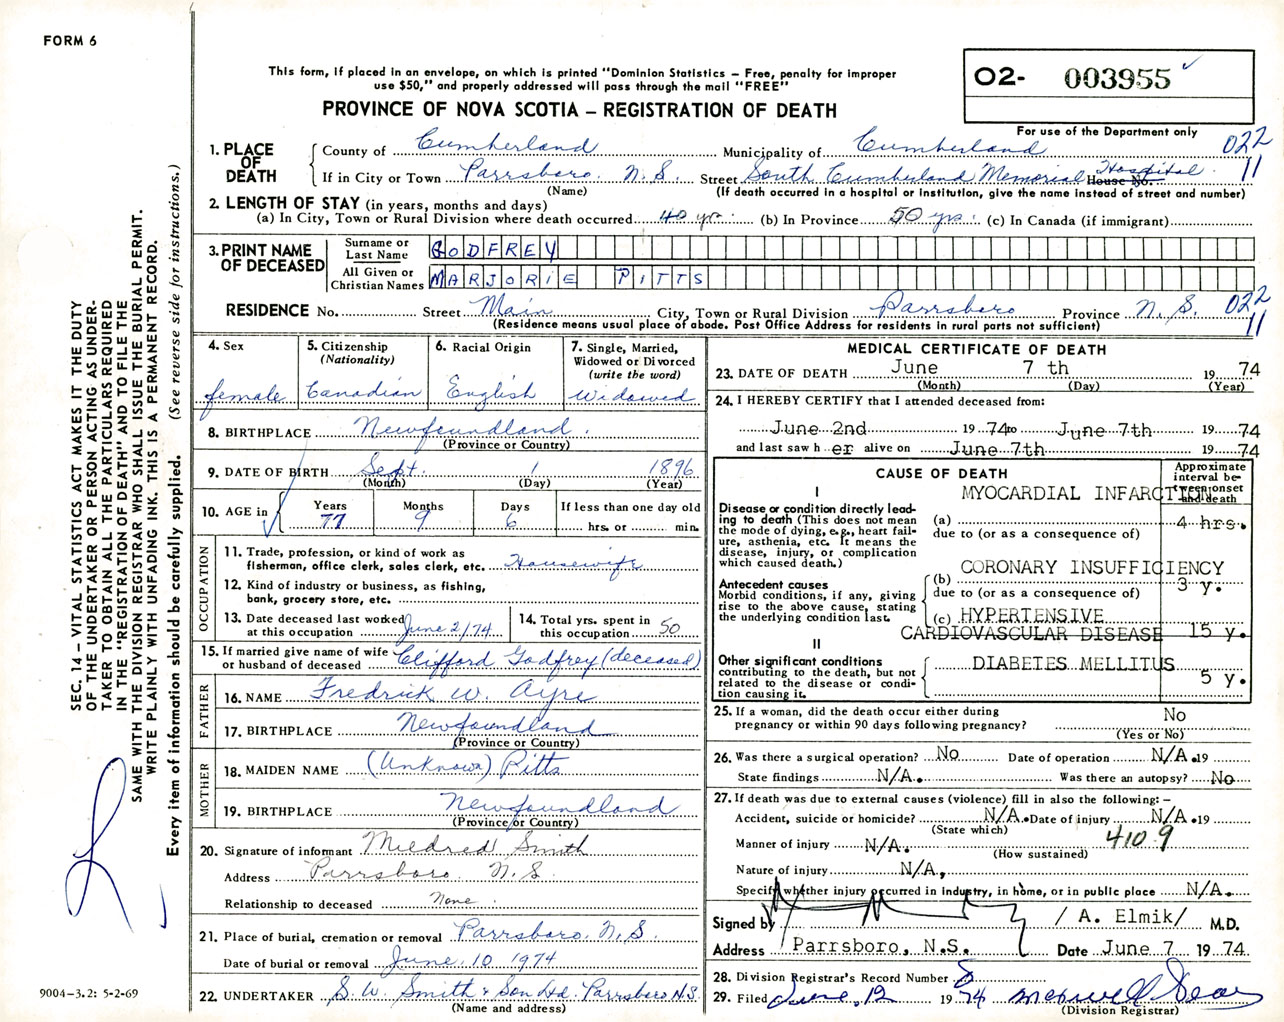 FORM 6
This form, if placed in an envelope, on which is printed "Dominion Statistics – Free, penalty for improper
use $50," and properly addressed will pass through the mail "FREE"
PROVINCE OF NOVA SCOTIA – REGISTRATION OF DEATH
02- 003955
For use of the Department only
SEC. 14 – VITAL STATISTICS ACT MAKES IT THE DUTY
OF THE UNDERTAKER OR PERSON ACTING AS UNDER-
TAKER TO OBTAIN ALL THE PARTICULARS REQUIRED
IN THE "REGISTRATION OF DEATH" AND TO FILE THE
SAME WITH THE DIVISION REGISTRAR WHO SHALL ISSUE THE BURIAL PERMIT.
WRITE PLAINLY WITH UNFADING INK. THIS IS A PERMANENT RECORD.
Every item of information should be carefully supplied. (See reverse side for instructions.)
1. PLACE OF DEATH
County of Cumberland Municipality of Cumberland 022
If in City or Town Parrsboro N.S. Street South Cumberland Memorial Hospital House No. 11
(Name) (If death occurred in a hospital or institution, give the name instead of street and number)
2. LENGTH OF STAY (in years, months and days)
(a) In City, Town or Rural Division where death occurred 40 yrs. (b) In Province 50 yrs. (c) In Canada (if immigrant)
3. PRINT NAME OF DECEASED
Surname or Last Name GODFREY
All Given or Christian Names MARJORIE PITTS
RESIDENCE No. Street Main City, Town or Rural Division Parrsboro Province N.S. 022
(Residence means usual place of abode. Post Office Address for residents in rural parts not sufficient) 11
4. Sex
female
5. Citizenship
(Nationality)
Canadian
6. Racial Origin
English
7. Single, Married,
Widowed or Divorced
(write the word)
Widowed
8. BIRTHPLACE Newfoundland.
(Province or Country)
9. DATE OF BIRTH Sept. 1 1896
(Month) (Day) (Year)
10. AGE in
Years Months Days If less than one day old
77 9 6 hrs. or min.
OCCUPATION
11. Trade, profession, or kind of work as
fisherman, office clerk, sales clerk, etc. Housewife
12. Kind of industry or business, as fishing,
bank, grocery store, etc.
13. Date deceased last worked
at this occupation June 2/74
14. Total yrs. spent in
this occupation 50
15. If married give name of wife
or husband of deceased Clifford Godfrey (deceased)
FATHER
16. NAME Fredrick W. Ayre
17. BIRTHPLACE Newfoundland
(Province or Country)
MOTHER
18. MAIDEN NAME (Unknown) Pitts
19. BIRTHPLACE Newfoundland
(Province or Country)
20. Signature of informant Mildred Smith
Address Parrsboro N.S.
Relationship to deceased None.
21. Place of burial, cremation or removal Parrsboro N.S.
Date of burial or removal June 10 1974
22. UNDERTAKER S.W. Smith & Son Ltd. Parrsboro N.S.
(Name and address)
9004–3.2: 5-2-69
MEDICAL CERTIFICATE OF DEATH
23. DATE OF DEATH June 7 th 19 74
(Month) (Day) (Year)
24. I HEREBY CERTIFY that I attended deceased from:
June 2nd 19 74 to June 7th 19 74
and last saw h er alive on June 7th 19 74
CAUSE OF DEATH
Approximate
interval be-
tween onset
and death
I
MYOCARDIAL INFARCTION
Disease or condition directly lead-
ing to death (This does not mean
the mode of dying, e.g., heart fail-
ure, asthenia, etc. It means the
disease, injury, or complication
which caused death.)
(a) 4 hrs.
due to (or as a consequence of)
CORONARY INSUFFICIENCY
Antecedent causes
Morbid conditions, if any, giving
rise to the above cause, stating
the underlying condition last.
(b) 3 y.
due to (or as a consequence of)
(c) HYPERTENSIVE
CARDIOVASCULAR DISEASE 15 y.
II
Other significant conditions
contributing to the death, but not
related to the disease or condi-
tion causing it.
DIABETES MELLITUS
5 y.
25. If a woman, did the death occur either during
pregnancy or within 90 days following pregnancy? No
(Yes or No)
26. Was there a surgical operation? No Date of operation N/A. 19
State findings N/A. Was there an autopsy? No
27. If death was due to external causes (violence) fill in also the following: –
Accident, suicide or homicide? N/A. Date of injury N/A. 19
(State which)
4109
Manner of injury N/A.
(How sustained)
Nature of injury N/A.
Specify whether injury occurred in industry, in home, or in public place N/A.
Signed by /A. Elmik/ M.D.
Address Parrsboro, N.S. Date June 7 19 74.
28. Division Registrar's Record Number 8
29. Filed June 12 19 74
(Division Registrar)